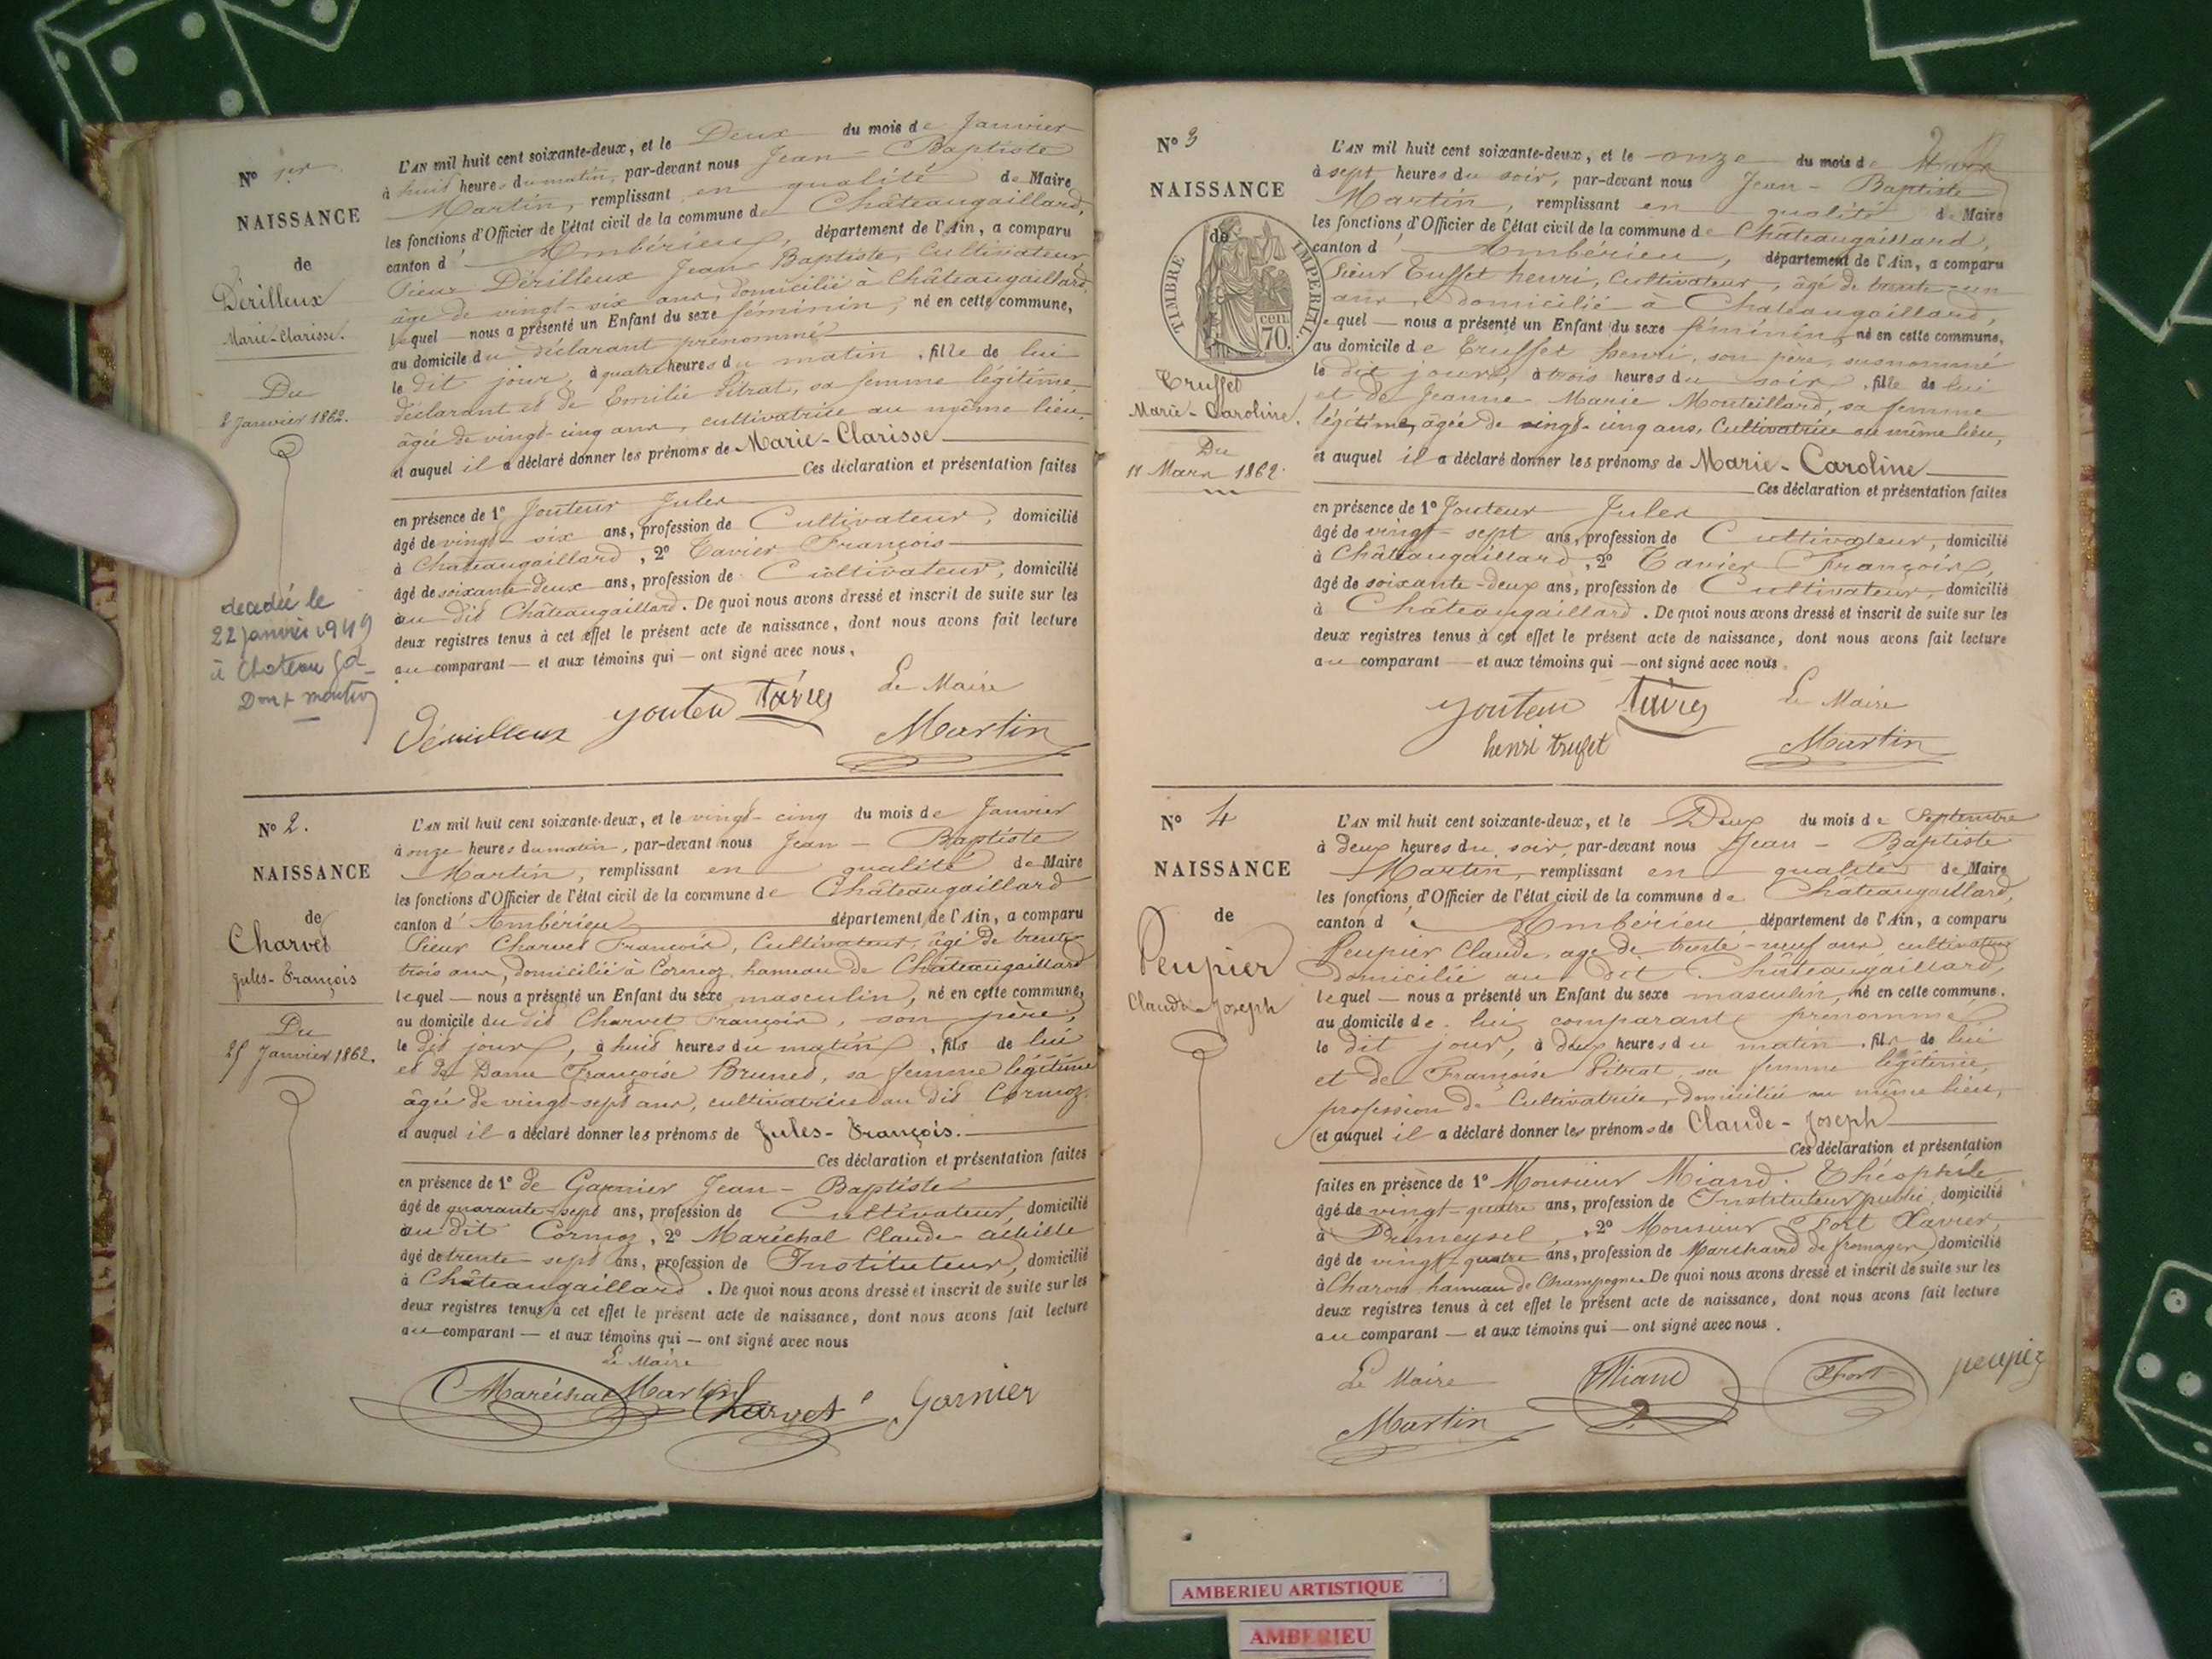 N° 1er
NAISSANCE
de
Dérilleux
Marie-Clarisse.
Du
2 Janvier 1862.
décédée le
22 janvier 1949
à Chateau Gd
L'AN mil huit cent soixante-deux, et le Deux du mois de Janvier
à huit heures du matin, par-devant nous Jean-Baptiste
Martin, remplissant en qualité de Maire
les fonctions d'Officier de l'état civil de la commune de Châteaugaillard,
canton d'Ambérieu, département de l'Ain, a comparu
Sieur Dérilleux Jean-Baptiste, Cultivateur
âgé de vingt-six ans, domicilié à Châteaugaillard,
lequel — nous a présenté un Enfant du sexe féminin, né en cette commune,
au domicile du déclarant prénommé
le dit jour, à quatre heures du matin, fille de lui
déclarant et de Emilie Pitrat, sa femme légitime,
âgée de vingt-cinq ans, cultivatrice au même lieu,
et auquel il a déclaré donner les prénoms de Marie-Clarisse
Ces déclaration et présentation faites
en présence de 1° Jouteur Jules
âgé de vingt-six ans, profession de Cultivateur, domicilié
à Chateaugaillard, 2° Tavier François
âgé de soixante-deux ans, profession de Cultivateur, domicilié
au dit Châteaugaillard. De quoi nous avons dressé et inscrit de suite sur les
deux registres tenus à cet effet le présent acte de naissance, dont nous avons fait lecture
au comparant — et aux témoins qui — ont signé avec nous.
Le Maire
Dérilleux Martin
N° 2.
NAISSANCE
de
Charvet
Jules-François
Du
25 Janvier 1862.
L'AN mil huit cent soixante-deux, et le vingt-cinq du mois de Janvier
à onze heures du matin, par-devant nous Jean-Baptiste
Martin, remplissant en qualité de Maire
les fonctions d'Officier de l'état civil de la commune de Châteaugaillard
canton d'Ambérieu département de l'Ain, a comparu
Sieur Charvet François, Cultivateur, âgé de trente
trois ans, domicilié à Cormoz, hameau de Châteaugaillard
lequel — nous a présenté un Enfant du sexe masculin, né en cette commune,
au domicile du dit Charvet François, son père,
le dit jour, à huit heures du matin, fils de lui
et de Dame Françoise Brunet, sa femme légitime
âgée de vingt-sept ans, cultivatrice au dit Cormoz
et auquel il a déclaré donner les prénoms de Jules-François.
Ces déclaration et présentation faites
en présence de 1° de Garnier Jean-Baptiste
âgé de quarante-sept ans, profession de Cultivateur, domicilié
au dit Cormoz, 2° Maréchal Claude Achille
âgé de trente-sept ans, profession de Instituteur, domicilié
à Châteaugaillard. De quoi nous avons dressé et inscrit de suite sur les
deux registres tenus à cet effet le présent acte de naissance, dont nous avons fait lecture
au comparant — et aux témoins qui — ont signé avec nous
Le Maire
Maréchal Martin Charvet Garnier
N° 3
NAISSANCE
de
TIMBRE IMPERIAL.
70 cen.
Truffet
Marie-Caroline.
Du
11 Mars 1862.
L'AN mil huit cent soixante-deux, et le onze du mois de Mars
à sept heures du soir, par-devant nous Jean-Baptiste
Martin, remplissant en qualité de Maire
les fonctions d'Officier de l'état civil de la commune de Châteaugaillard,
canton d'Ambérieu, département de l'Ain, a comparu
Sieur Truffet henri, Cultivateur, âgé de trente-un
ans, domicilié à Chateaugaillard,
lequel — nous a présenté un Enfant du sexe féminin, né en cette commune,
au domicile de Truffet henri, son père, susnommé
le dit jour, à trois heures du soir, fille de lui
et de Jeanne-Marie Monteillard, sa femme
légitime, âgée de vingt-cinq ans, Cultivatrice au même lieu,
et auquel il a déclaré donner les prénoms de Marie-Caroline
Ces déclaration et présentation faites
en présence de 1° Jouteur Jules
âgé de vingt-sept ans, profession de Cultivateur, domicilié
à Châteaugaillard, 2° Tavier François,
âgé de soixante-deux ans, profession de Cultivateur, domicilié
à Châteaugaillard. De quoi nous avons dressé et inscrit de suite sur les
deux registres tenus à cet effet le présent acte de naissance, dont nous avons fait lecture
au comparant — et aux témoins qui — ont signé avec nous.
Le Maire
henri trufet Martin
N° 4
NAISSANCE
de
Peupier
Claude-Joseph
L'AN mil huit cent soixante-deux, et le Deux du mois de Septembre
à deux heures du soir, par-devant nous Jean-Baptiste
Martin, remplissant en qualité de Maire
les fonctions d'Officier de l'état civil de la commune de Châteaugaillard,
canton d'Ambérieu département de l'Ain, a comparu
Peupier Claude, âgé de trente-neuf ans, cultivateur
domicilié au dit Châteaugaillard,
lequel — nous a présenté un Enfant du sexe masculin, né en cette commune.
au domicile de lui comparant prénommé
le dit jour, à deux heures du matin, fils de lui
et de Françoise Pitrat, sa femme légitime,
profession de Cultivatrice, domiciliée au même lieu,
et auquel il a déclaré donner les prénoms de Claude-Joseph
Ces déclaration et présentation
faites en présence de 1° Monsieur Miand Théophile
âgé de vingt-quatre ans, profession de Instituteur public, domicilié
à 2° Monsieur Fort Xavier,
âgé de vingt-quatre ans, profession de Marchand de fromages, domicilié
à Charon hameau de Champagne De quoi nous avons dressé et inscrit de suite sur les
deux registres tenus à cet effet le présent acte de naissance, dont nous avons fait lecture
au comparant — et aux témoins qui — ont signé avec nous.
Le Maire Miand XFort peupier
Martin
AMBERIEU ARTISTIQUE
AMBERIEU